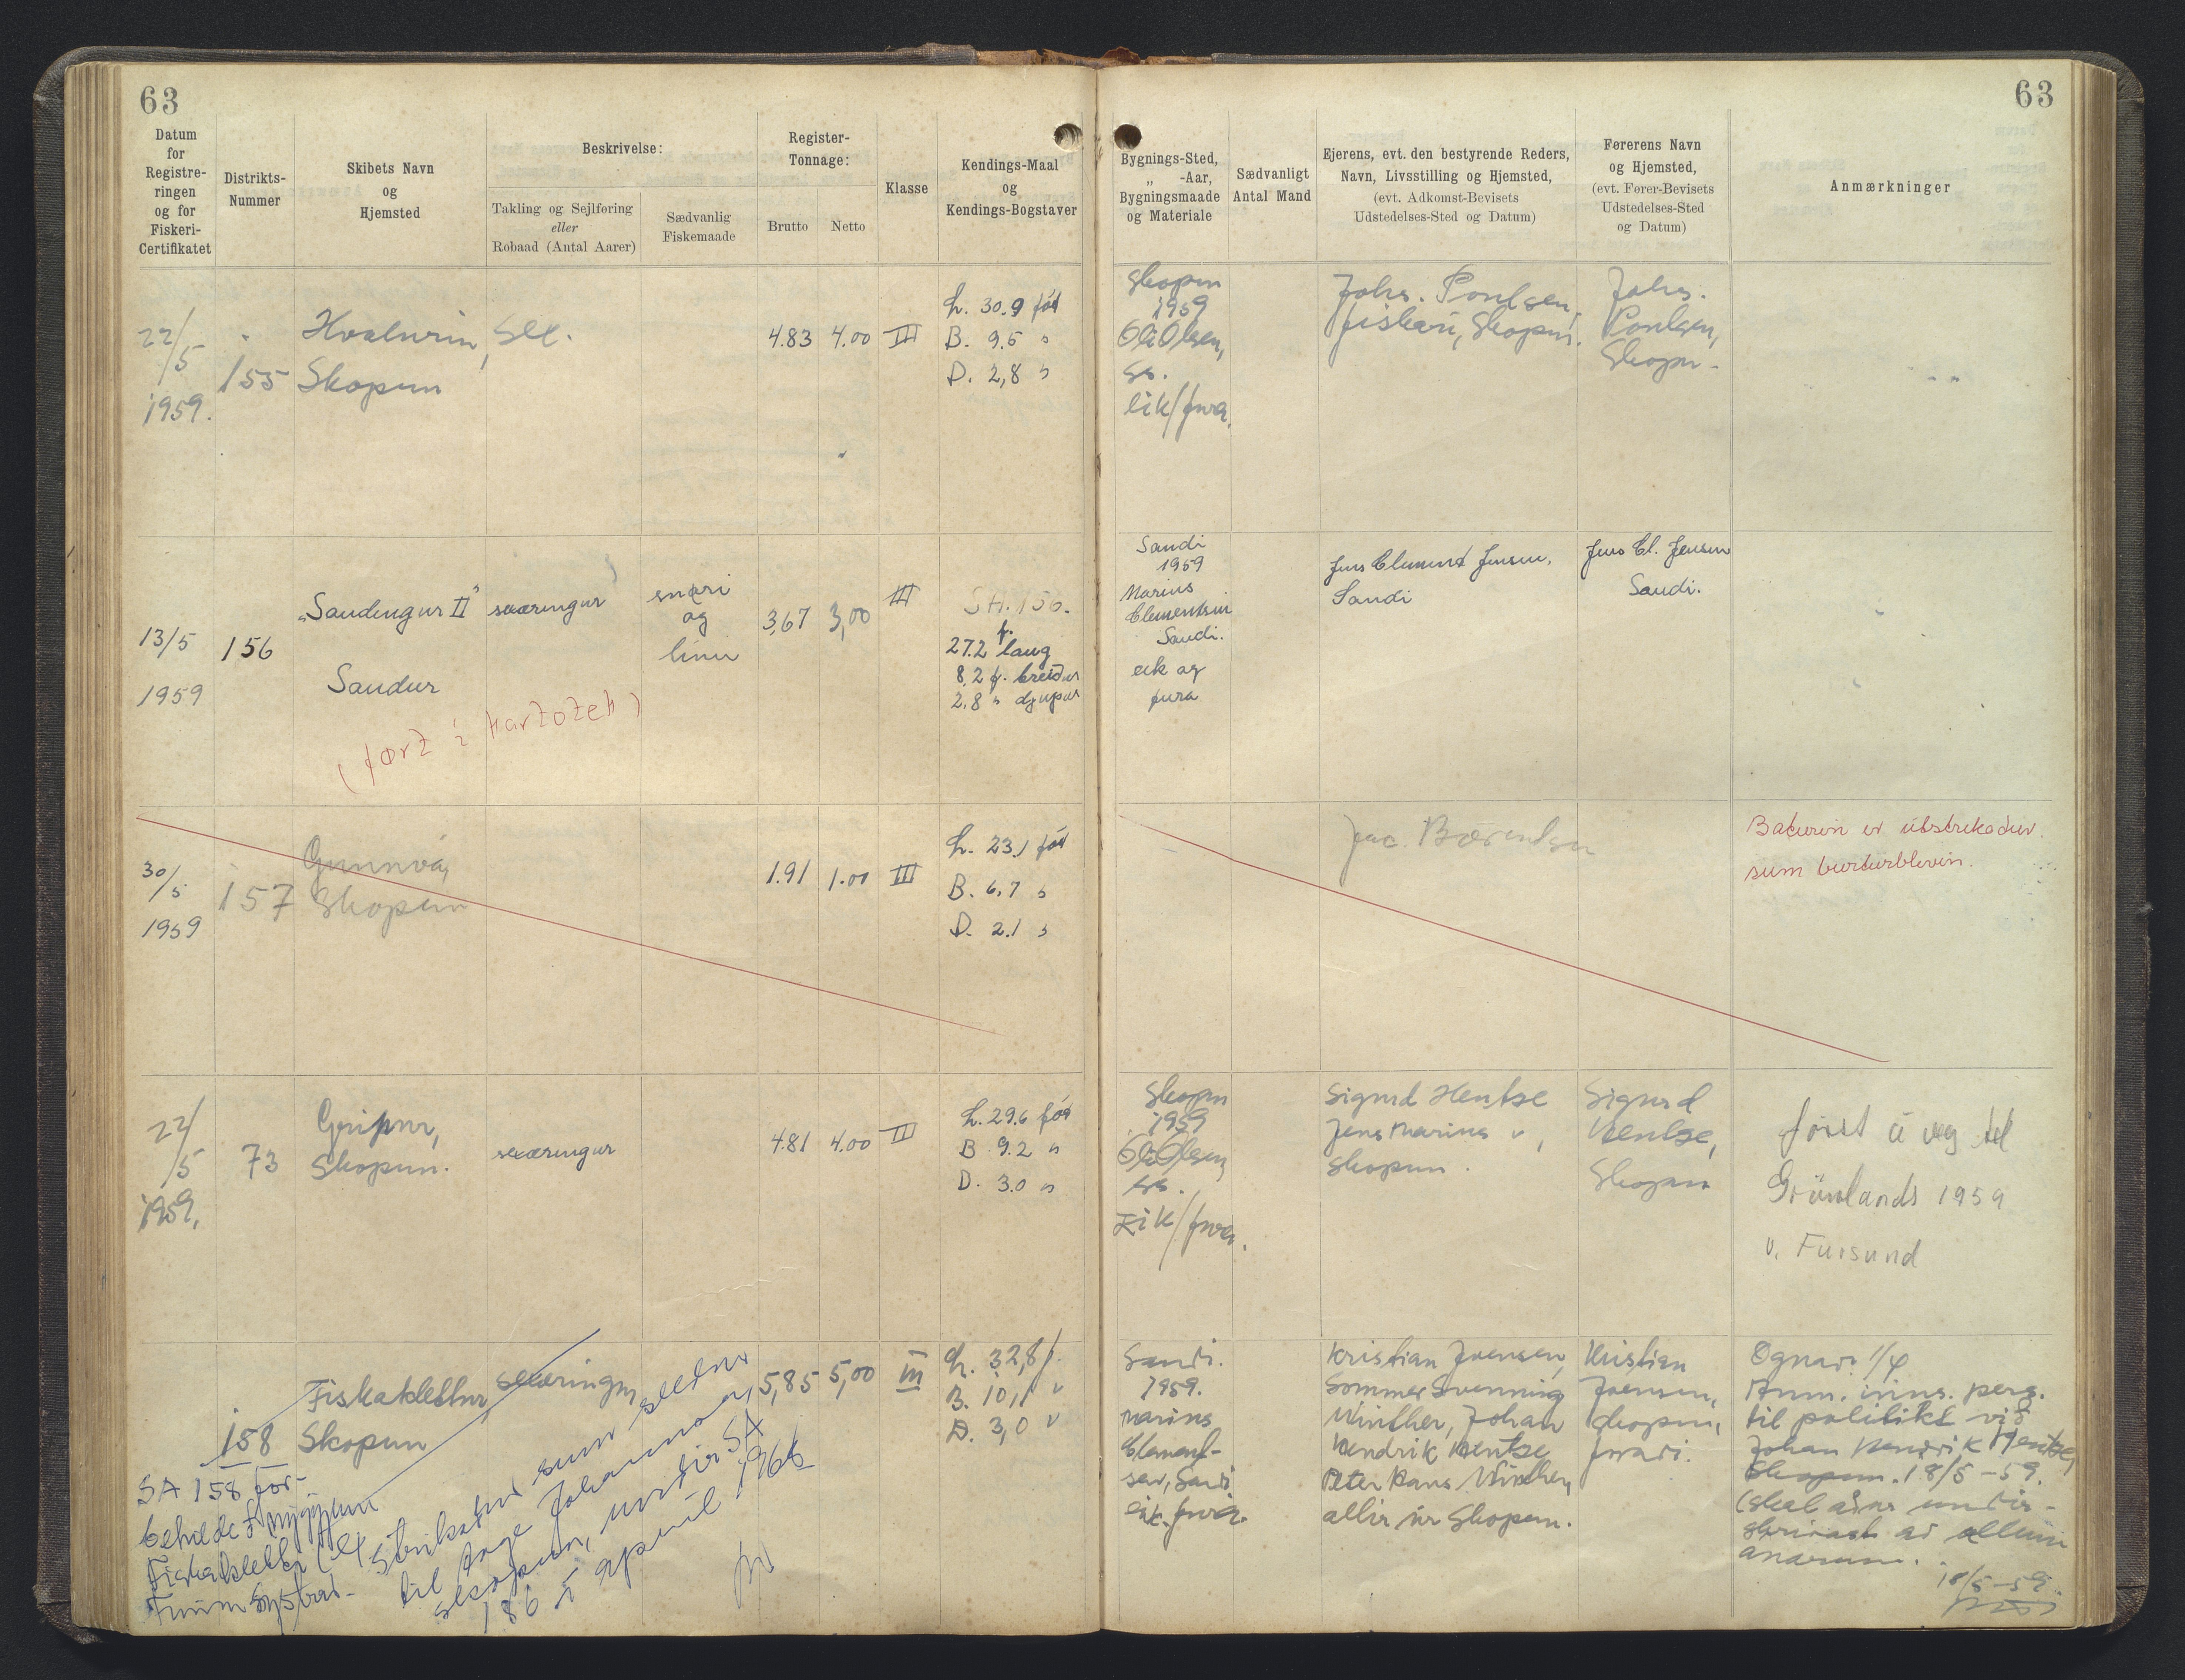 63
63
Datum
for
Registre-
ringen
og for
Fiskeri-
Certifikatet
Distrikts-
Nummer
Skibets Navn
og
Hjemsted
Beskrivelse:
Takling og Sejlføring
eller
Robaad (Antal Aarer)
Sædvanlig
Fiskemaade
Register-
Tonnage:
Brutto
Netto
Klasse
Kendings-Maal
og
Kendings-Bogstaver
Bygnings-Sted,
„ -Aar,
Bygningsmaade
og Materiale
Sædvanligt
Antal Mand
Ejerens, evt. den bestyrende Reders,
Navn, Livsstilling og Hjemsted,
(evt. Adkomst-Bevisets
Udstedelses-Sted og Datum)
Førerens Navn
og Hjemsted,
(evt. Fører-Bevisets
Udstedelses-Sted
og Datum)
Anmærkninger
22/5
1959.
155
Hvalurin,
Skopun
sex.
4.83
4.00
III
L. 30.9 fót
B. 9.5 "
D. 2,8 "
Skopun
1959
Óli Olsen,
ss.
eik/fura.
Johs. Poulsen,
fiskari, Skopun.
Johs.
Poulsen,
Skopun.
13/5
1959
156
"Sandingur II"
Sandur
sexæringur
snøri
og
línu
3,67
3,00
III
SA. 156.
27.2 f. lang
8,2 f. breiður
2.8 " djúpur
Sandi
1959
Marius
Clementsen
Sandi.
eik og
fura
Jens Clement Jensen,
Sandi
Jens Cl. Jensen
Sandi.
(ført í kartotek)
30/5
1959
157
Gunnvá,
Skopun
1.91
1.00
III
L. 23.1 fót
B. 6.7 "
D. 2.1 "
Jac. Bærentsen
Báturin er útstrikaður
sum burturblivin.
22/5
1959.
73
Gripur,
Skopun.
sexæringur
4.81
4.00
II
L. 29.6 fót
B 9.2 "
D. 3.0 "
Skopun
1959
Óli Olsen,
ss.
Eik/fura.
Sigurd Hentze
Jens Marius ",
Skopun.
Sigurd
Hentze,
Skopun
farist á veg til
Grønlands 1959
v. Fursund
158
Fiskaklettur,
Skopun
sexæringur
5,85
5,00
III
L. 32,8 f.
B. 10,1 "
D. 3,0 "
Sandi.
1959.
Marius
Clement-
sen, Sandi
eik. fura.
Kristian Joensen,
Sommer Svenning
Winther, Johan
Hendrik Hentze
Peter Hans Winther,
allir úr Skopun.
Kristian
Joensen,
Skopun,
Ognari 1/4
til politikt við
Johan Hendrik Hentze,
Skopun. 18/5-59.
(skal undir-
skrivast av øllum
18/5-59.
SA 158 for-
beholdt nýggjum
Fiskaklettur
strikaður sum seldur
til Aage Johannesen,
Skopun, undir SA
186 í apríl 1966